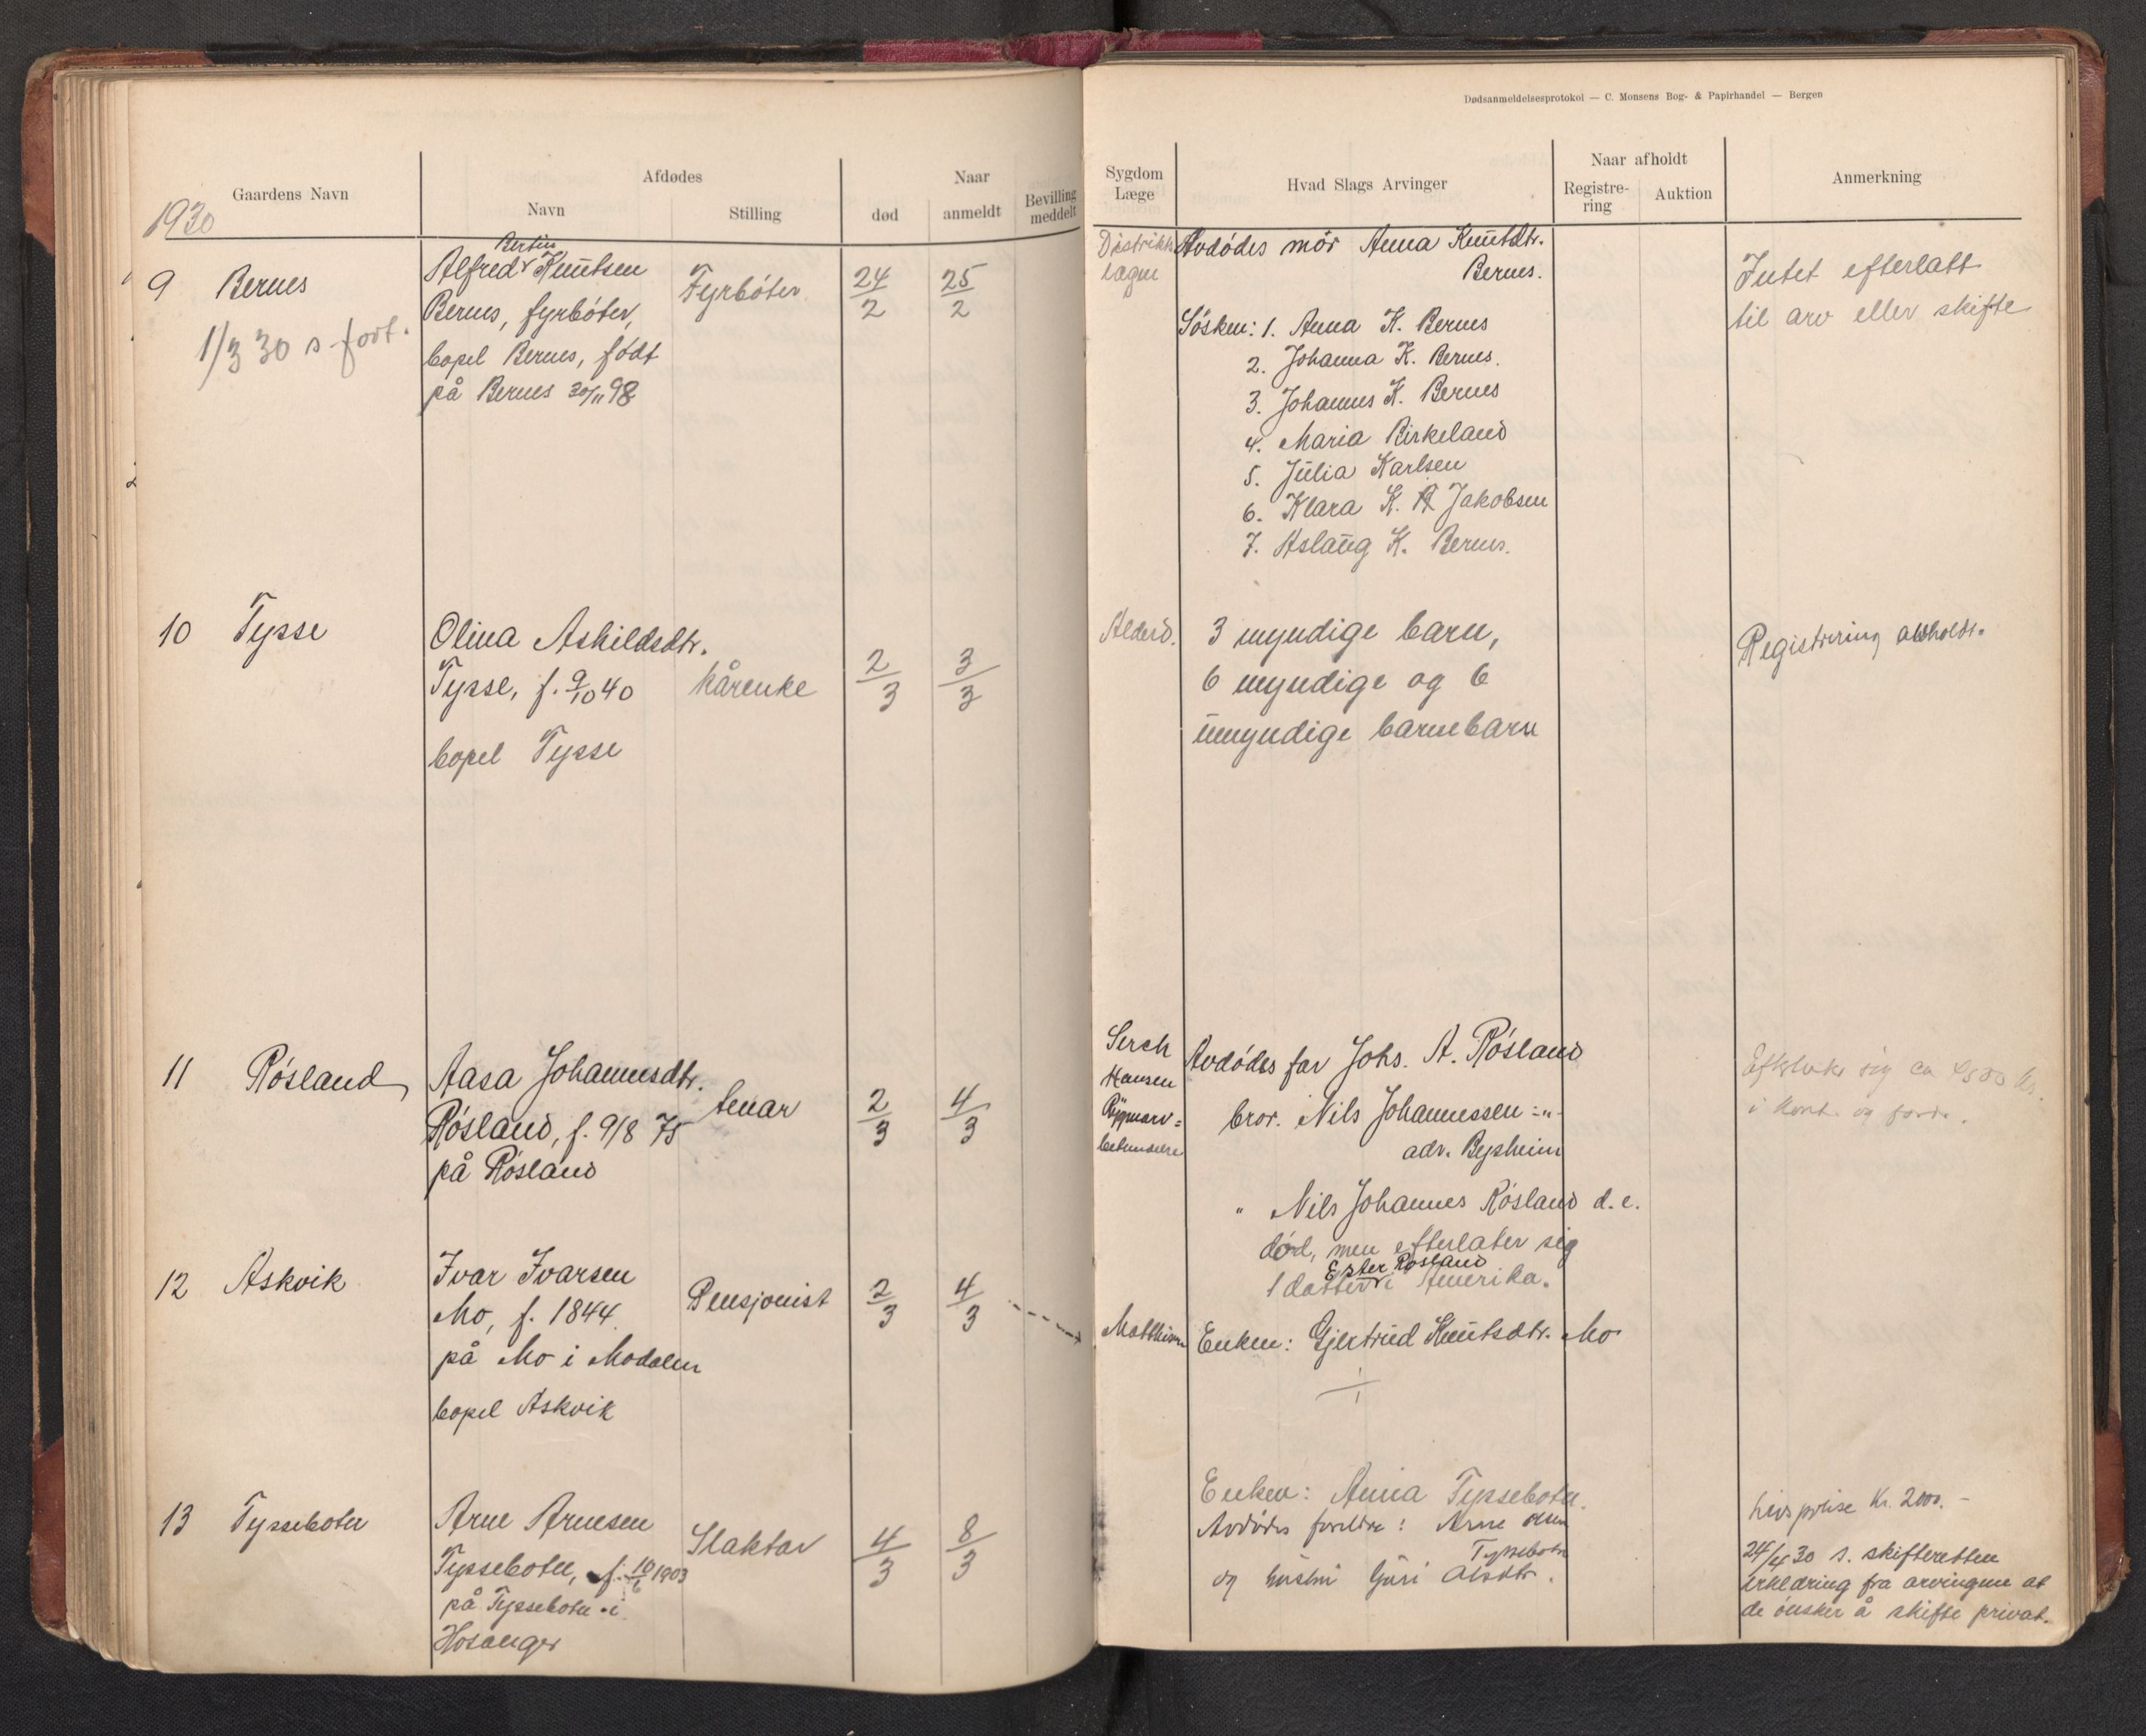 Dødsanmeldelsesprotokol — C. Monsens Bog- & Papirhandel — Bergen
Gaardens Navn
Afdødes
Navn
Stilling
Naar
død
anmeldt
Bevilling
meddelt
Sygdom
Læge
Hvad Slags Arvinger
Naar afholdt
Registre-
ring
Auktion
Anmerkning
1930
9 Bernes
1/3 30 s fort.
Bertin
Alfred Knutsen
Bernes, fyrbøter,
bopel Bernes, født
på Bernes 30/11 98
Fyrbøter
24/2
25/2
Distrikts
lægen
Avdødes mor Anna Knutsdtr.
Bernes.
Søsken: 1. Anna K. Bernes
2. Johanna K. Bernes.
3. Johannes K. Bernes
4. Maria Birkeland
5. Julia Karlsen
6. Klara K. Jakobsen
7. Aslaug K. Bernes.
Intet efterlatt
til arv eller skifte
10 Tysse
Olina Askildsdtr.
Tysse, f. 9/10 40
bopel Tysse
kårenke
2/3
3/3
Alderd.
3 myndige barn,
6 myndige og 6
umyndige barnebarn
Registrering avholdt.
11 Røsland
Aasa Johannesdtr.
Røsland, f. 9/8 75
på Røsland
tenar
2/3
4/3
Serch
Hansen
Avdødes far Johs. A. Røsland
bror. Nils Johannessen :"
adr. Bysheim
" Nils Johannes Røsland d.e.
død, men efterlater sig
Ester Røsland
1 datter i Amerika.
sig ca
i kont. og
12 Askvik
Ivar Ivarsen
Mo, f. 1844
på Mo i Modalen
bopel Askvik
Pensjonist
2/3
4/3
Enken: Gjertrud Knutsdtr. Mo
13 Tyssebotn
Arne Arnesen
Tyssebotn, f. 10/6 1903
på Tyssebotn i
Hosanger
Slaktar
4/3
8/3
Enken: Anna Tyssebotn.
Avdødes foreldre: Arne Olsen
Tyssebotn
og hustru Guri Olsdtr.
Livspolise Kr. 2000.-
24/4 30 s. skifteretten
erklæring fra arvingene at
de ønsker å skifte privat.